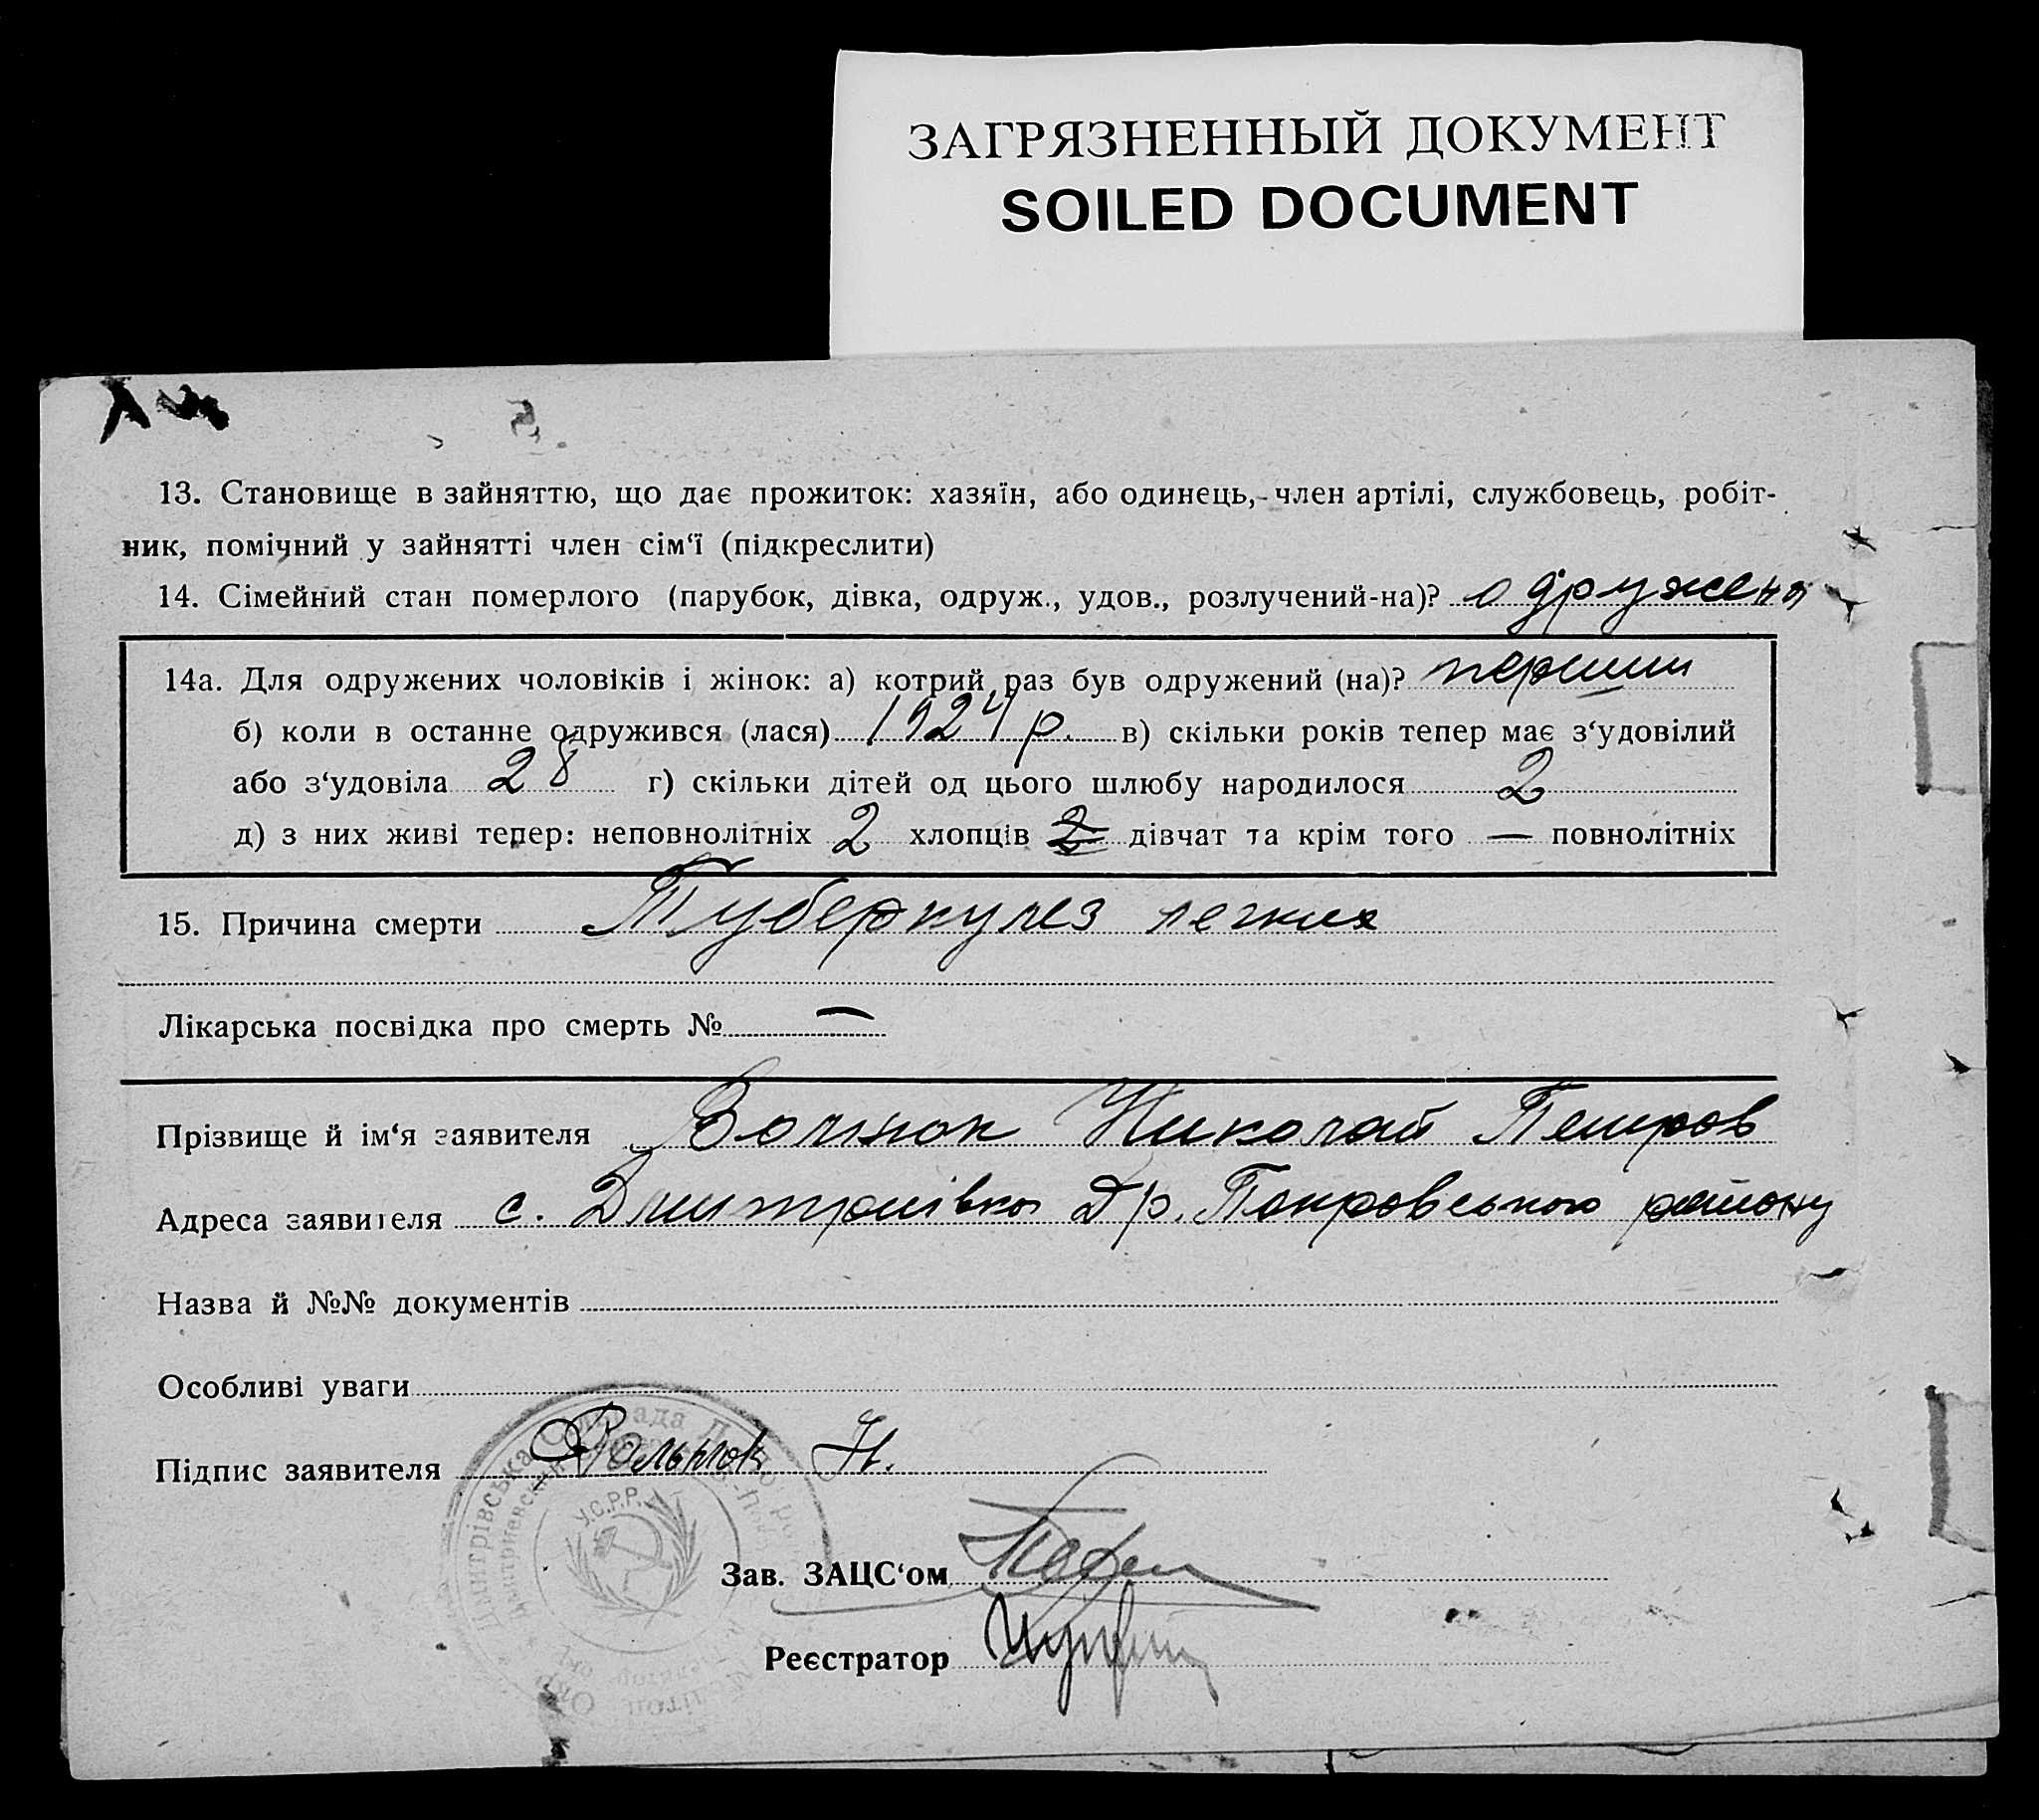 ЗАГРЯЗНЕННЫЙ ДОКУМЕНТ
SOILED DOCUMENT
13. Становище в зайняттю, що дає прожиток: хазяїн, або одинець, член артілі, службовець, робіт-
ник, помічний у зайнятті член сім‘ї (підкреслити)
14. Сімейний стан померлого (парубок, дівка, одруж., удов., розлучений-на)? одружена
14а. Для одружених чоловіків і жінок: а) котрий раз був одружений (на)? перший
б) коли в останне одружився (лася) 1924 р. в) скільки років тепер має з‘удовілий
або з‘удовіла 28 г) скільки дітей од цього шлюбу народилося 2
д) з них живі тепер: неповнолітніх 2 хлопців 2 дівчат та крім того — повнолітніх
15. Причина смерти Туберкулез легких
Лікарська посвідка про смерть № —
Прізвище й ім‘я заявителя Николай Петров
Адреса заявителя с. Дмитрівка Др. Покровського району
Назва й №№ документів
Особливі уваги
Підпис заявителя Н.
У.С.Р.Р.
Зав. ЗАЦС‘ом
Реєстратор